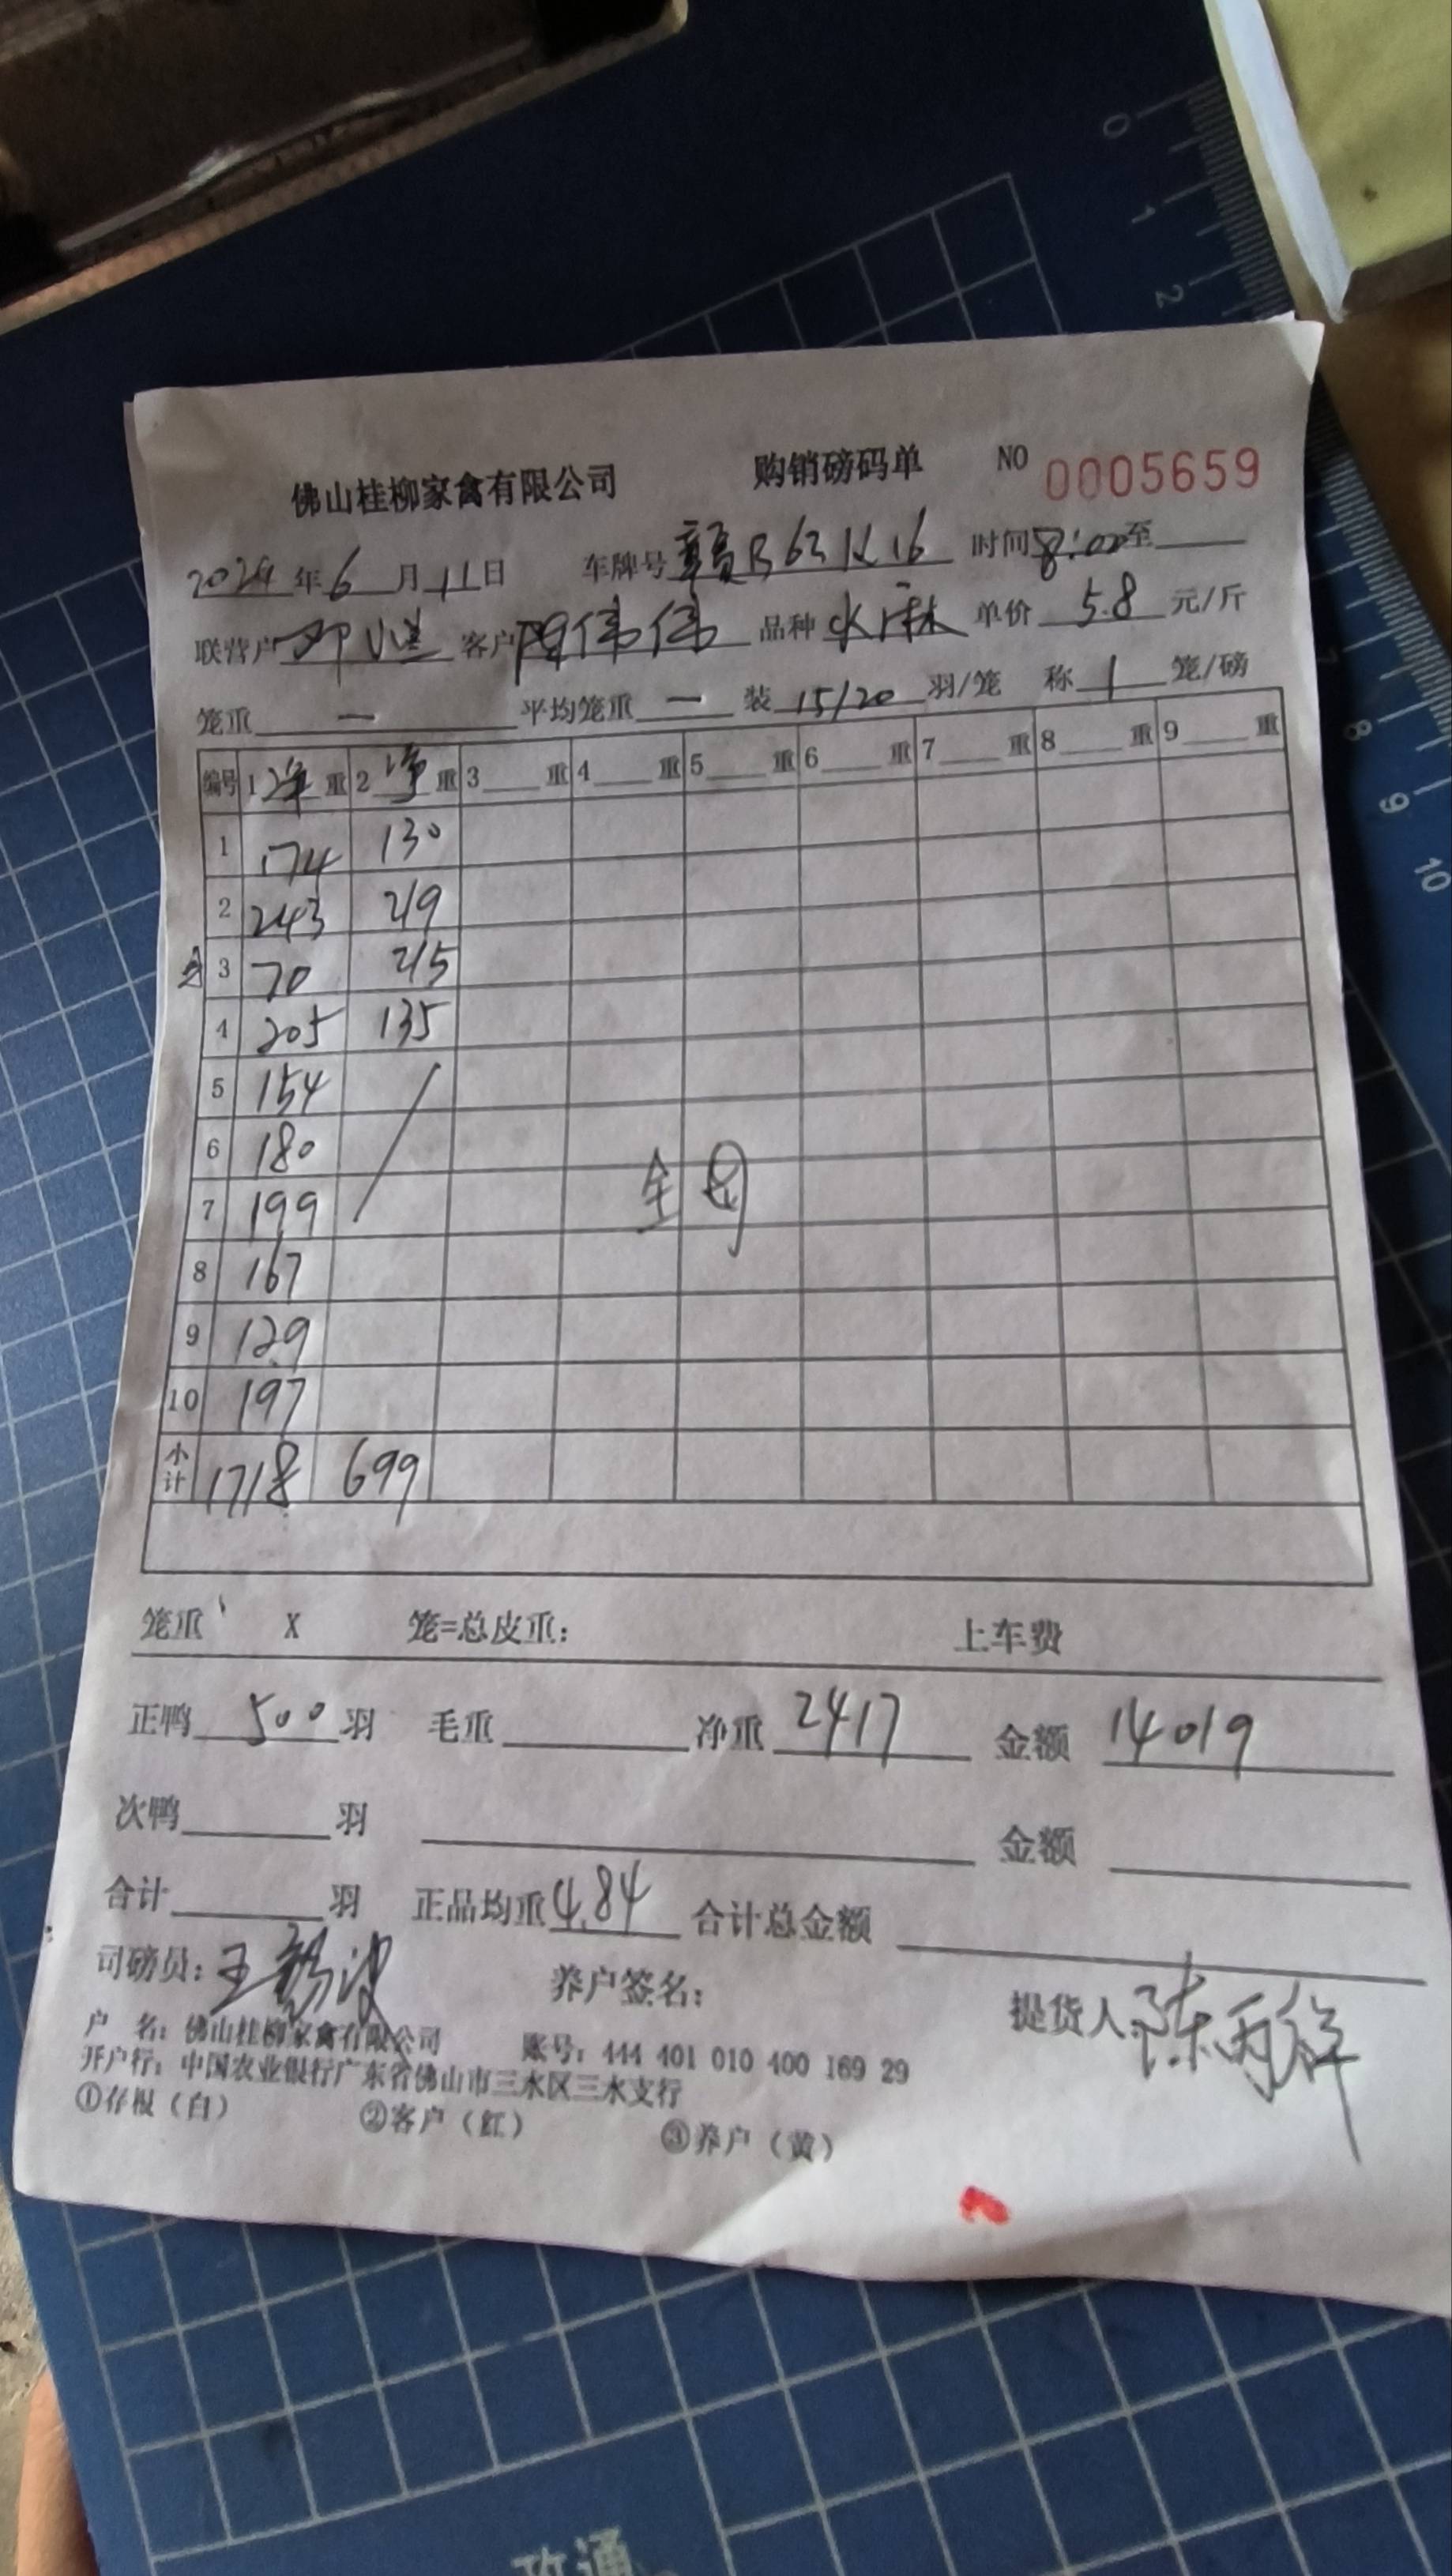 0
1
2
佛山桂柳家禽有限公司 购销磅码单 NO 0005659
2024年6月11日 车牌号 赣B62K16 时间8:00至
联营户 客户陈伟伟 品种水麻 单价5.8元/斤
笼重 — 平均笼重 — 装15/20羽/笼 称1笼/磅
编号 1净重 2净重 3重 4重 5重 6重 7重 8重 9重
1 174 130
2 243 219
3 70 215
4 205 135
5 154
6 180
7 199
全母
8 167
9 129
10 197
小计 1718 699
笼重 X 笼=总皮重: 上车费
正鸭500羽 毛重 净重2417 金额14019
次鸭 羽 金额
合计 羽 正品均重4.84 合计总金额
司磅员: 养户签名: 提货人:陈丙祥
户 名: 佛山桂柳家禽有限公司 账号: 444 401 010 400 169 29
开户行: 中国农业银行广东省佛山市三水区三水支行
①存根（白） ②客户（红） ③养户（黄）
7
8
9
10